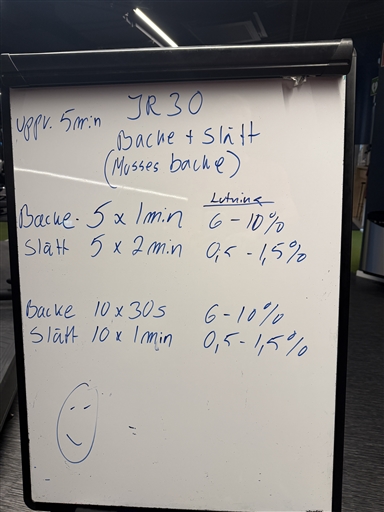 JR30
uppv. 5min
Backe + Slätt
(Mosses backe)
Lutning
Backe. 5 x 1min 6-10%
Slätt 5 x 2min 0,5-1,5%
Backe 10 x 30s 6-10%
Slätt 10 x 1min 0,5-1,5%